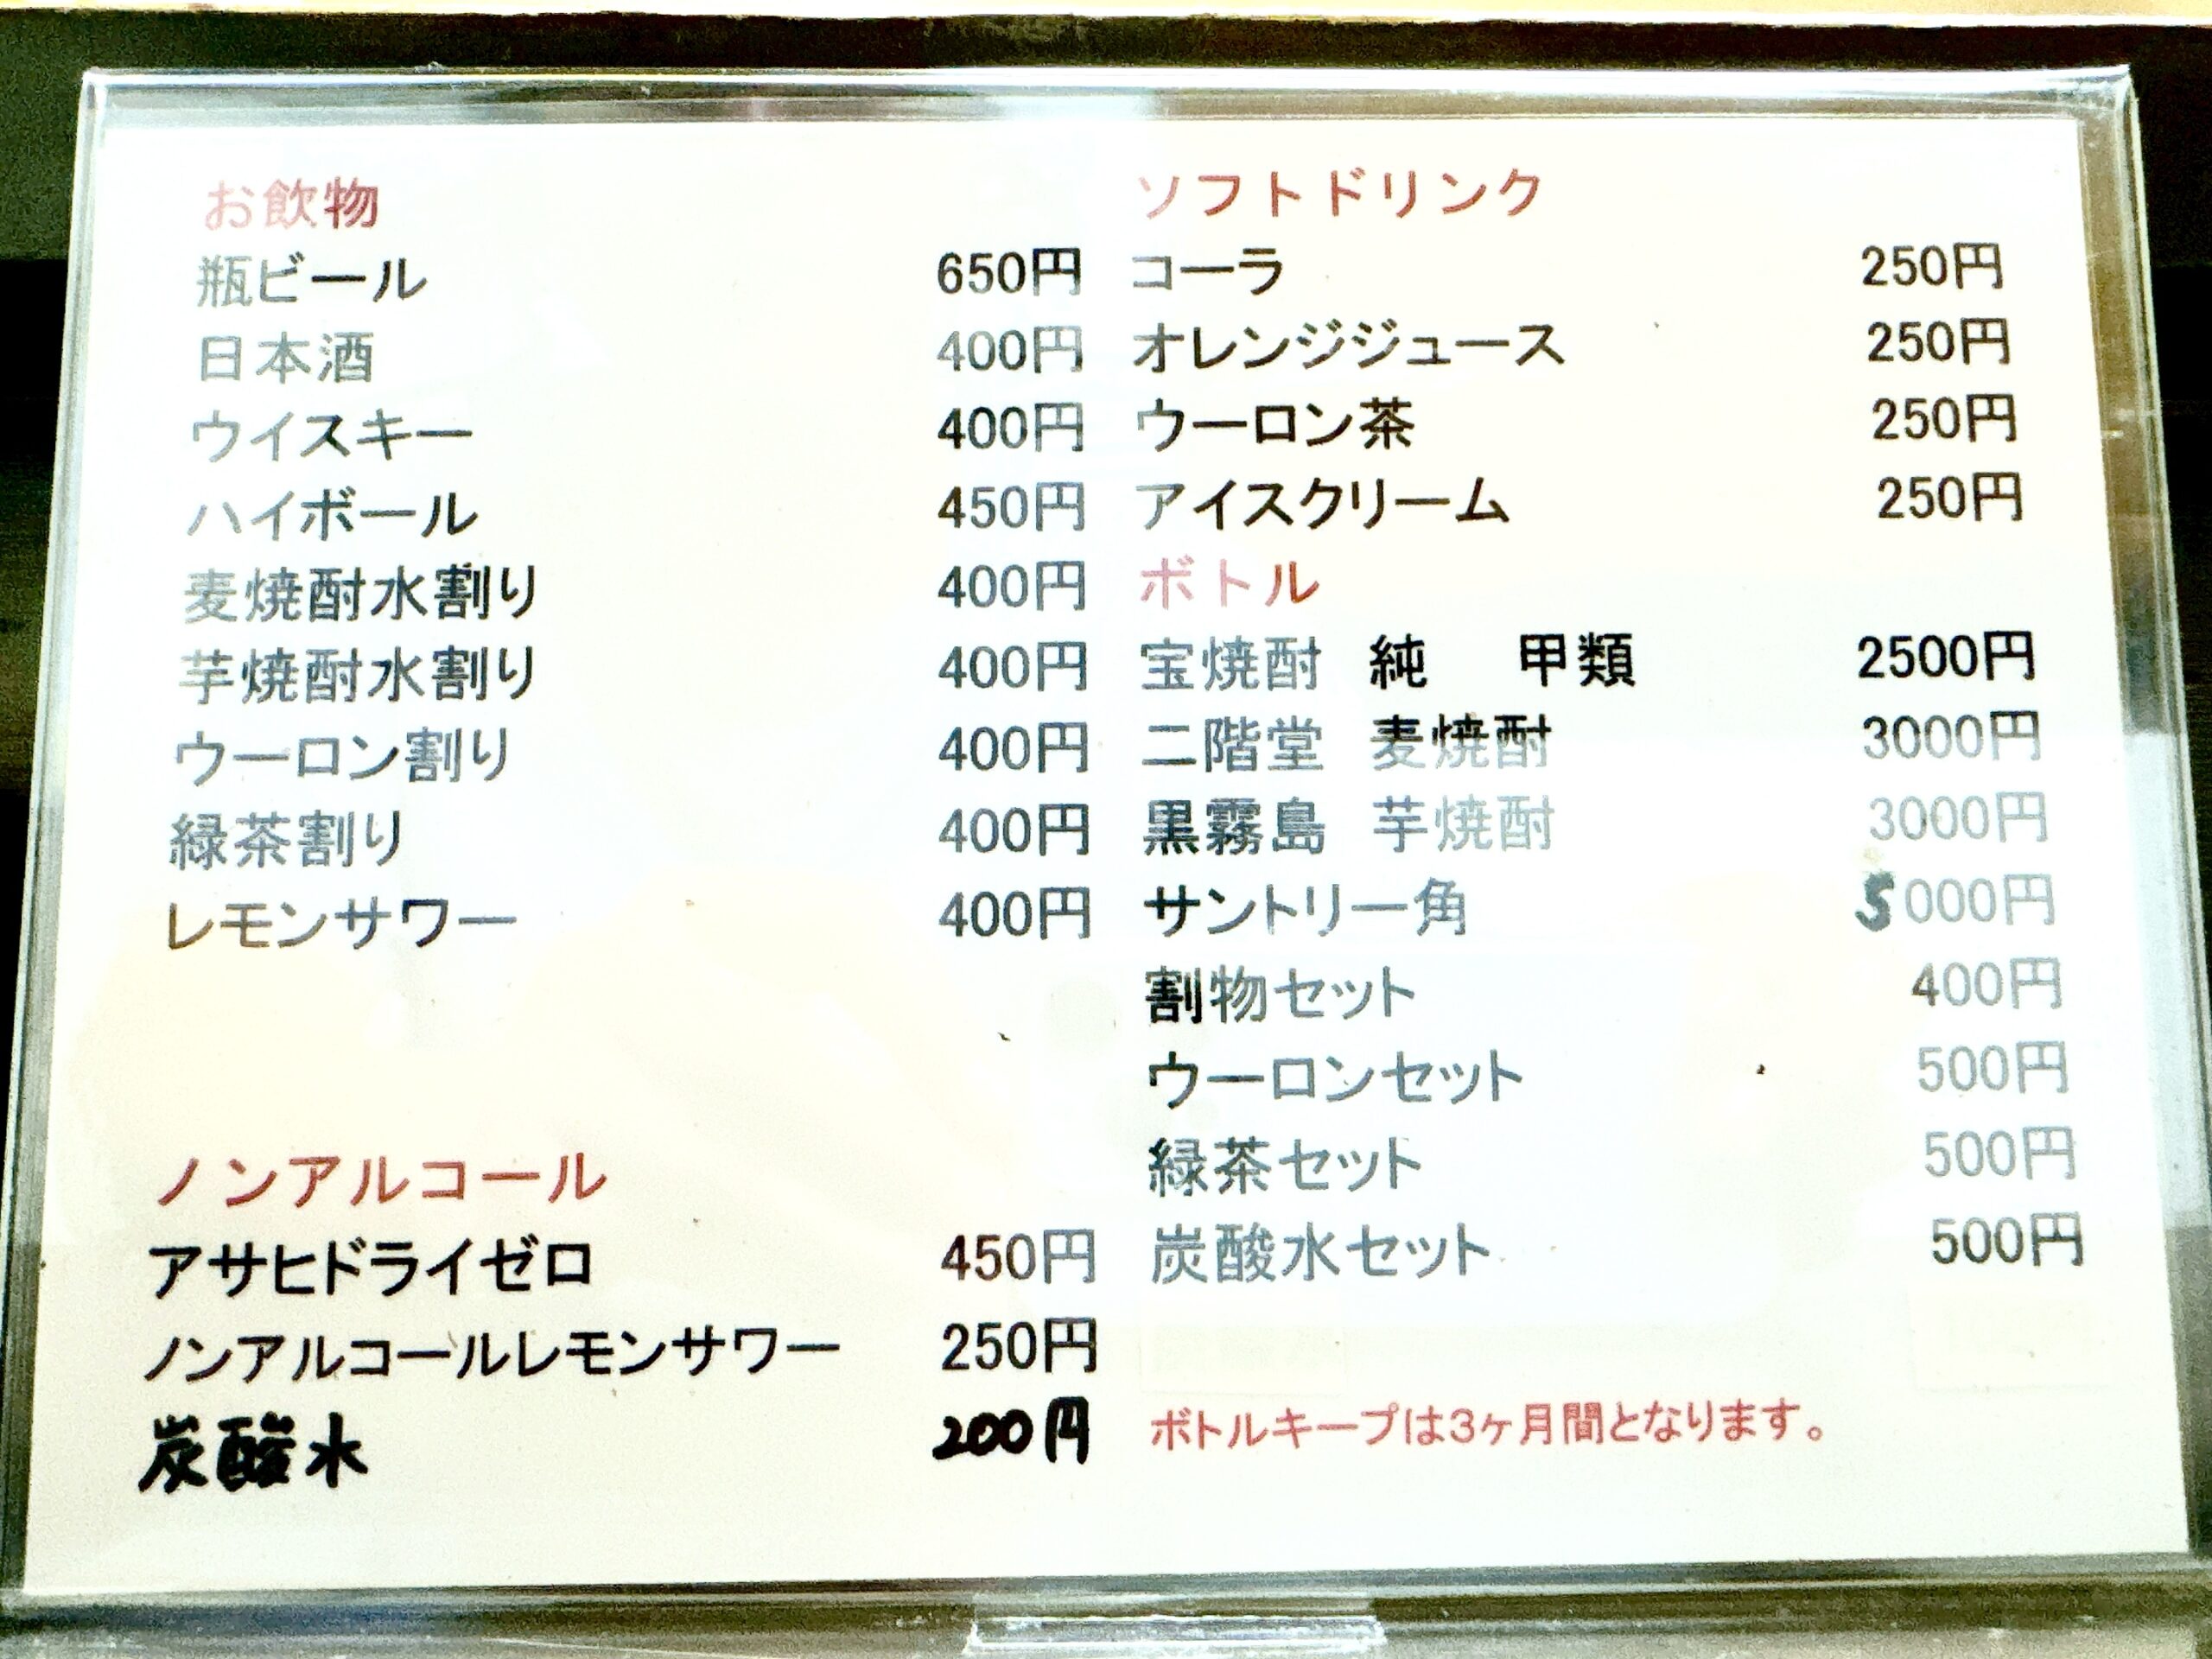 お飲物
瓶ビール 650円
日本酒 400円
ウイスキー 400円
ハイボール 450円
麦焼酎水割り 400円
芋焼酎水割り 400円
ウーロン割り 400円
緑茶割り 400円
レモンサワー 400円
ノンアルコール
アサヒドライゼロ 450円
ノンアルコールレモンサワー 250円
炭酸水 200円
ソフトドリンク
コーラ 250円
オレンジジュース 250円
ウーロン茶 250円
アイスクリーム 250円
ボトル
宝焼酎 純 甲類 2500円
二階堂 麦焼酎 3000円
黒霧島 芋焼酎 3000円
サントリー角 5000円
割物セット 400円
ウーロンセット 500円
緑茶セット 500円
炭酸水セット 500円
ボトルキープは3ヶ月間となります。